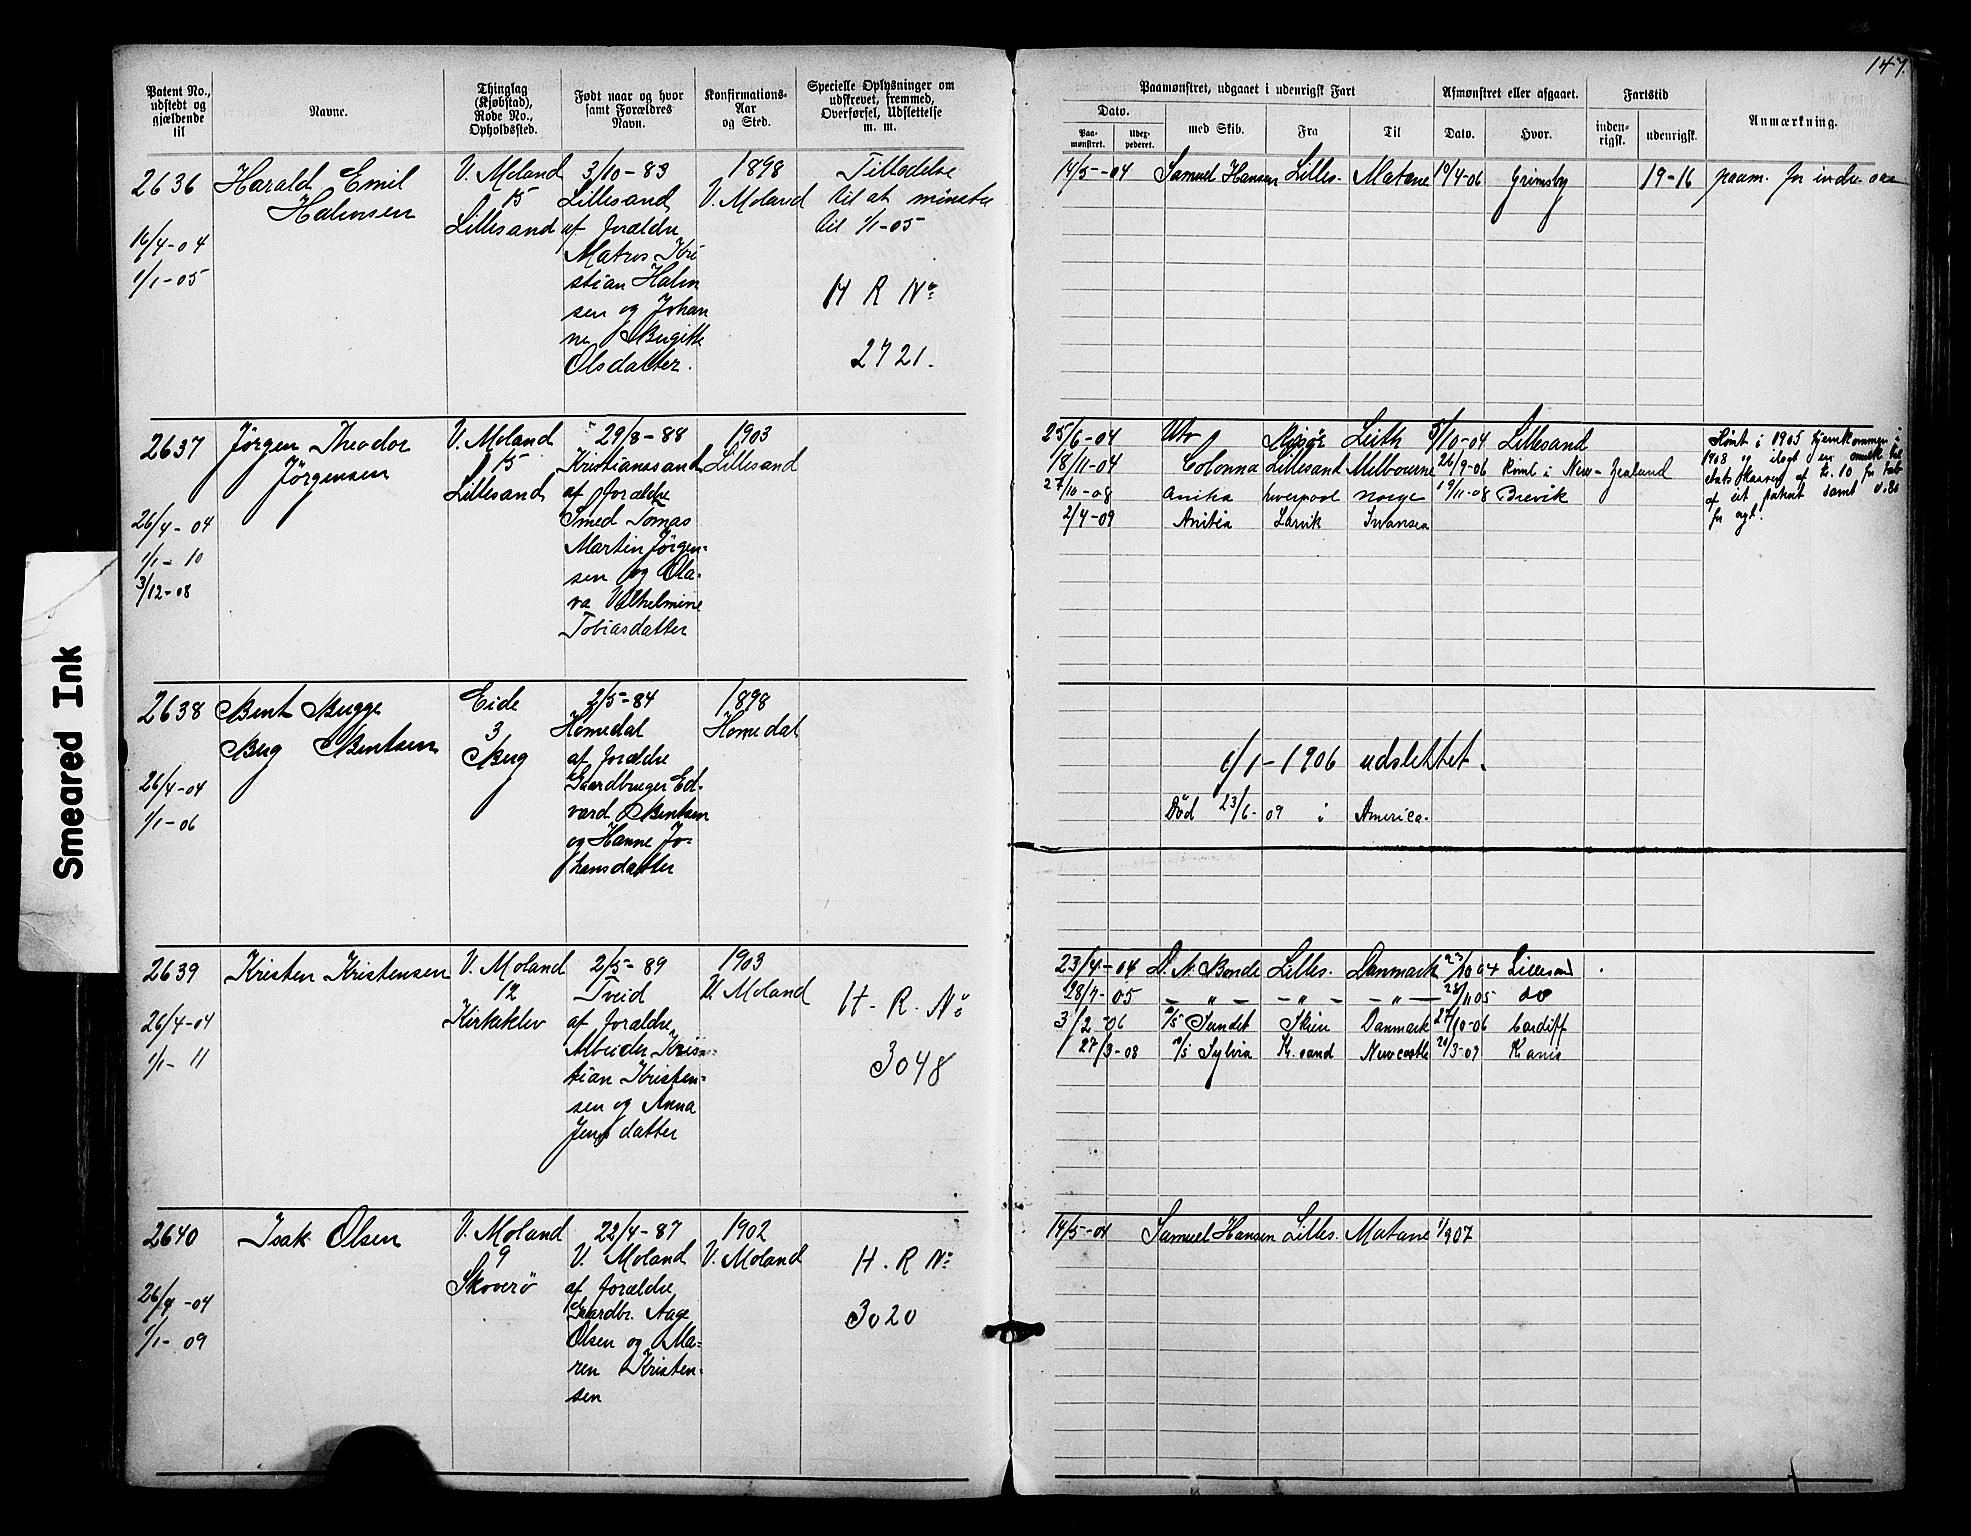 147.
Smeared Ink
Patent No., udstedt og gjældende til
Navne.
Thinglag (Kjøbstad), Rode No., Opholdssted.
Født naar og hvor samt Forældres Navn.
Konfirmations-Aar og Sted.
Specielle Oplysninger om udskrevet, fremmed, Overførsel, Udslettelse m. m.
Paamønstret, udgaaet i udenrigsk Fart
Dato.
Paa-mønstret.
Udex-pederet.
med Skib.
Fra
Til
Afmønstret eller afgaaet.
Dato.
Hvor.
Fartstid
inden-rigsk.
udenrigsk.
Anmærkning.
2636
16/4-04
1/1-05
Harald Emil
Halvorsen
V. Moland
15
Lillesand
3/10-83
Lillesand
af forældre
Matros Kri
stian Halvor
sen og Johan
ne Birgitte
Olsdatter.
1898
V. Moland
Tilladelse
til at mønstre
til 1/1-05
H R No
2721.
14/5-04 Samuel Hansen Lilles. Matane 19/4-06 Grimsby 19-16
2637
26/4-04
1/1-10
3/12-08
Jörgen Theodor
Jörgensen
V. Moland
15
Lillesand
29/8-88
Kristianssand
af forældre
Smed Tomas
Martin Jörgen-
sen og Ola-
va Vilhelmine
Tobiasdatter
1903
Lillesand
25/6-04 Leith 3/10-04 Lillesand
18/11-04 Colonna Lillesand Melbourne 26/9-06 Rømt i New-Zealand
27/10-08 Anitra Liverpool Norge 19/11-08 Brevik
2/4-09 Anitra Larvik Swansea
Rømt i 1905 hjemkommen i
1908 og ilagt en mulkt til
af kr. 10 for tab
af sit patent samt 0.80
for
2638
26/4-04
1/1-06
Bent Bugge
Berg Bentsen
Eide
3
Berg
2/5-84
Homedal
af forældre
Gaardbruger Ed-
vard Bentsen
og Hanne Jo-
hansdatter
1898
Homedal
1/1-1906 udslettet.
Död 23/6-09 i America.
2639
26/4-04
1/1-11
Kristen Kristensen
V. Moland
12
Kirkekleiv
2/5-89
Tveid
af forældre
Arbeider Kris-
tian Kristen-
sen og Anna
Jens datter
1903
V. Moland
H. R. No
3048
23/4-04 D. N. Bonde Lilles. Danmark 23/10 04 Lillesand
28/7-05 – „ – – „ – – „ – 28/11 05 do
3/2-06 Sundet Skien Danmark 27/10-06 Cardiff
27/3-08 Sylvia K. sand Newcastle 20/3-09 K ania
2640
26/4-04
1/1-09
Isak Olsen
V. Moland
9
Skoverö
22/4-87
V. Moland
af forældre
Gaardbr. Aage
Olsen og Ma-
ren Kristen-
sen
1902
V. Moland
H. R No
3020
14/5-04 Samuel Hansen Lilles. Matane 1/9 07